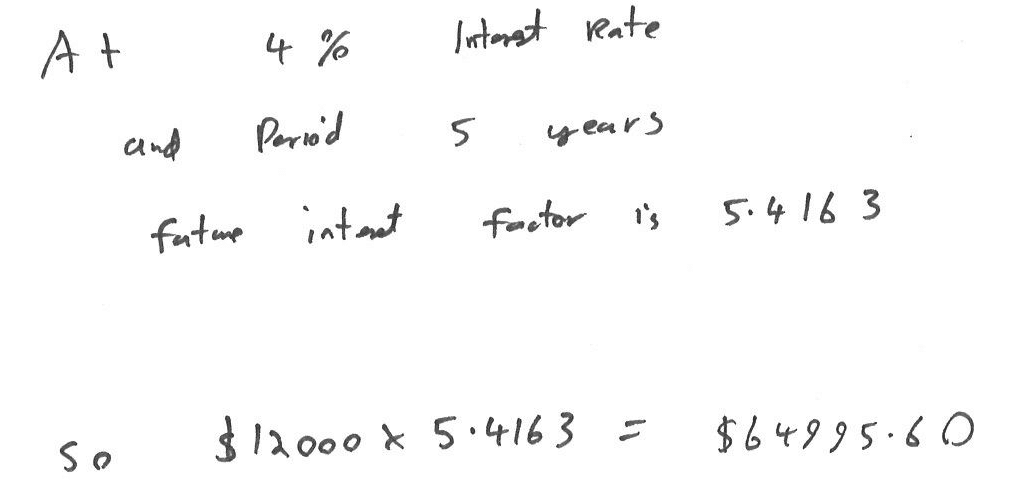 At 4% Interest Rate
and Period 5 years
future interest factor is 5.4163
So $12000 x 5.4163 = $64995.60